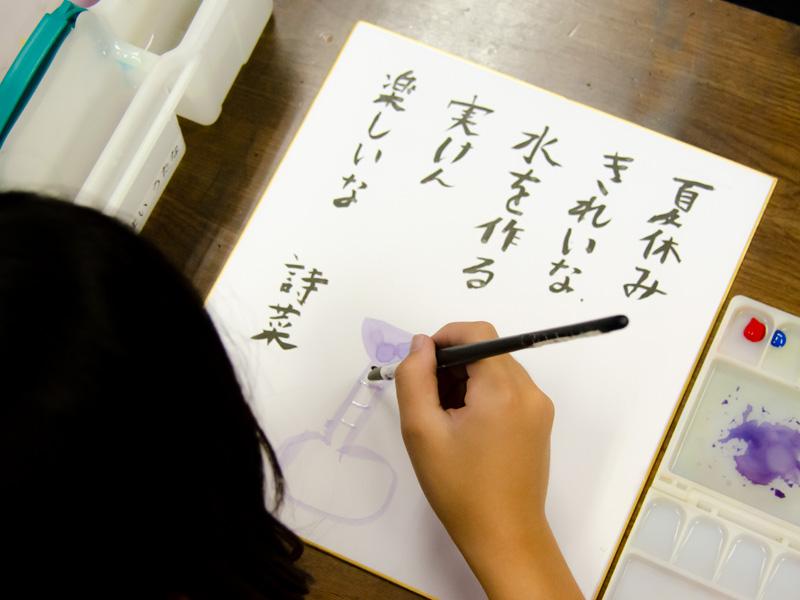 夏休み
きれいな
水を作る
実けん
楽しいな
詩菜